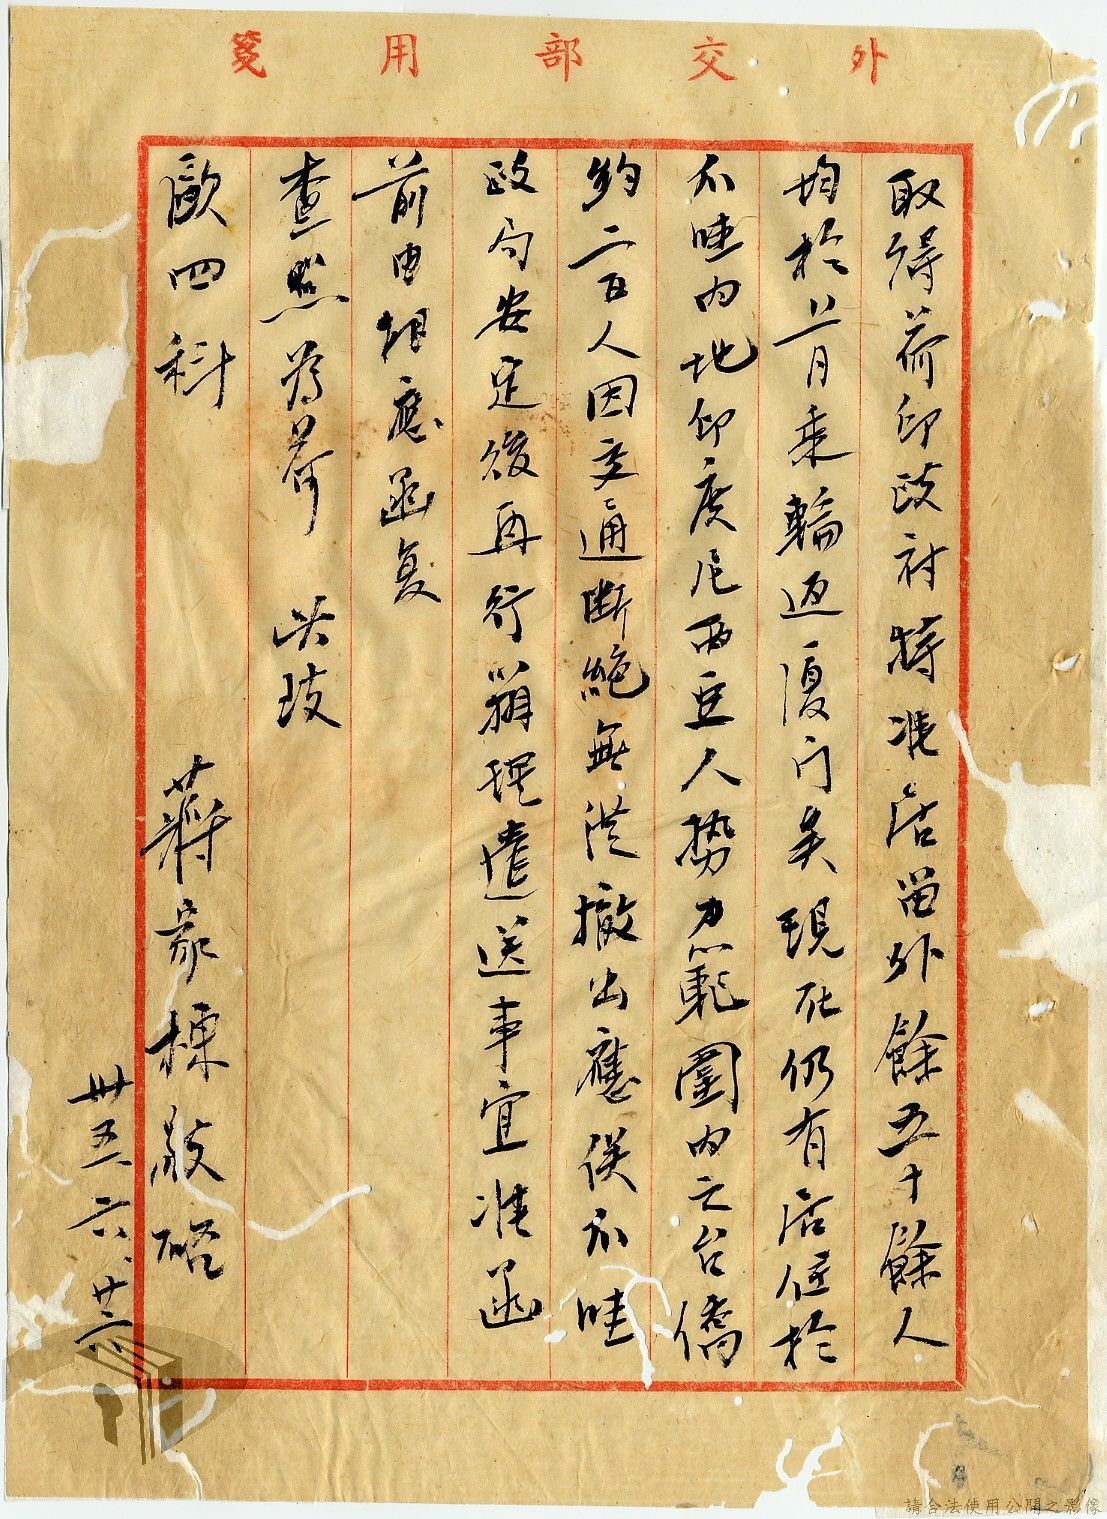 外交部用箋
取得荷印政府特准居留外餘五十餘人
均於苔月乘輪返廈门矣現在仍有居住於
爪哇内地印度尼西亞人勢力範圍内之台僑
約二百人因交通斷絕無從撤出應俟爪哇
政局安定後再行辦理遣送事宜准函
前由相應函复
查照為荷 此致
歐四科
蔣家棟敬啓
卅五、六、廿六
請合法使用公開之影像